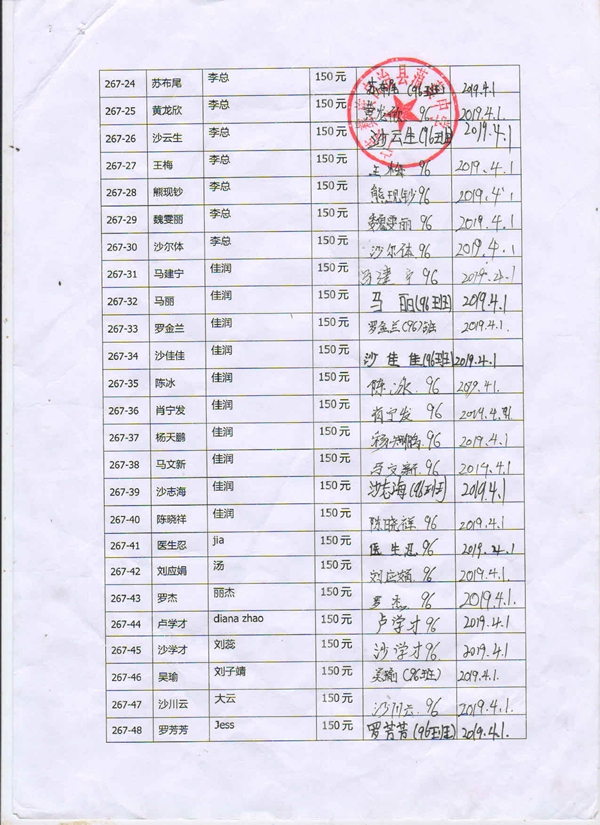 267-24 苏布尾 李总 150元 苏布尾 (96班) 2019.4.1
267-25 黄龙欣 李总 150元 黄龙欣 96 2019.4.1
267-26 沙云生 李总 150元 沙云生(96班) 2019.4.1
267-27 王梅 李总 150元 王梅 96 2019.4.1
267-28 熊现钞 李总 150元 熊现钞 96 2019.4.1
267-29 魏雯丽 李总 150元 魏雯丽 96 2019.4.1
267-30 沙尔体 李总 150元 沙尔体 96 2019.4.1
267-31 马建宁 佳润 150元 马建宁 96 2019.4.1
267-32 马丽 佳润 150元 马丽(96班) 2019.4.1
267-33 罗金兰 佳润 150元 罗金兰(96)班 2019.4.1
267-34 沙佳佳 佳润 150元 沙佳佳(96班) 2019.4.1
267-35 陈冰 佳润 150元 陈冰 96 2019.4.1
267-36 肖宁发 佳润 150元 肖宁发 96 2019.4.1
267-37 杨天鹏 佳润 150元 96 2019.4.1
267-38 马文新 佳润 150元 马文新 96 2019.4.1
267-39 沙志海 佳润 150元 沙志海(96班) 2019.4.1
267-40 陈晓祥 佳润 150元 陈晓祥 96 2019.4.1
267-41 医生忍 jia 150元 医生忍 96 2019.4.1
267-42 刘应娟 汤 150元 刘应娟 96 2019.4.1
267-43 罗杰 丽杰 150元 罗杰 96 2019.4.1.
267-44 卢学才 diana zhao 150元 卢学才 96 2019.4.1
267-45 沙学才 刘蕊 150元 沙学才 96 2019.4.1.
267-46 吴瑜 刘子靖 150元 吴瑜 (96班) 2019.4.1
267-47 沙川云 大云 150元 沙川云 96 2019.4.1
267-48 罗芳芳 Jess 150元 罗芳芳(96班) 2019.4.1.